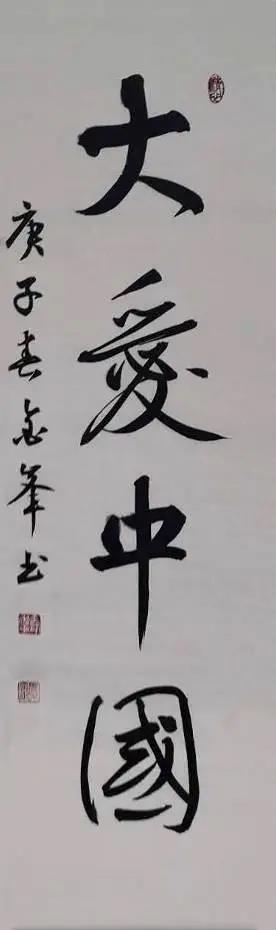 大愛中國
庚子春金峯書